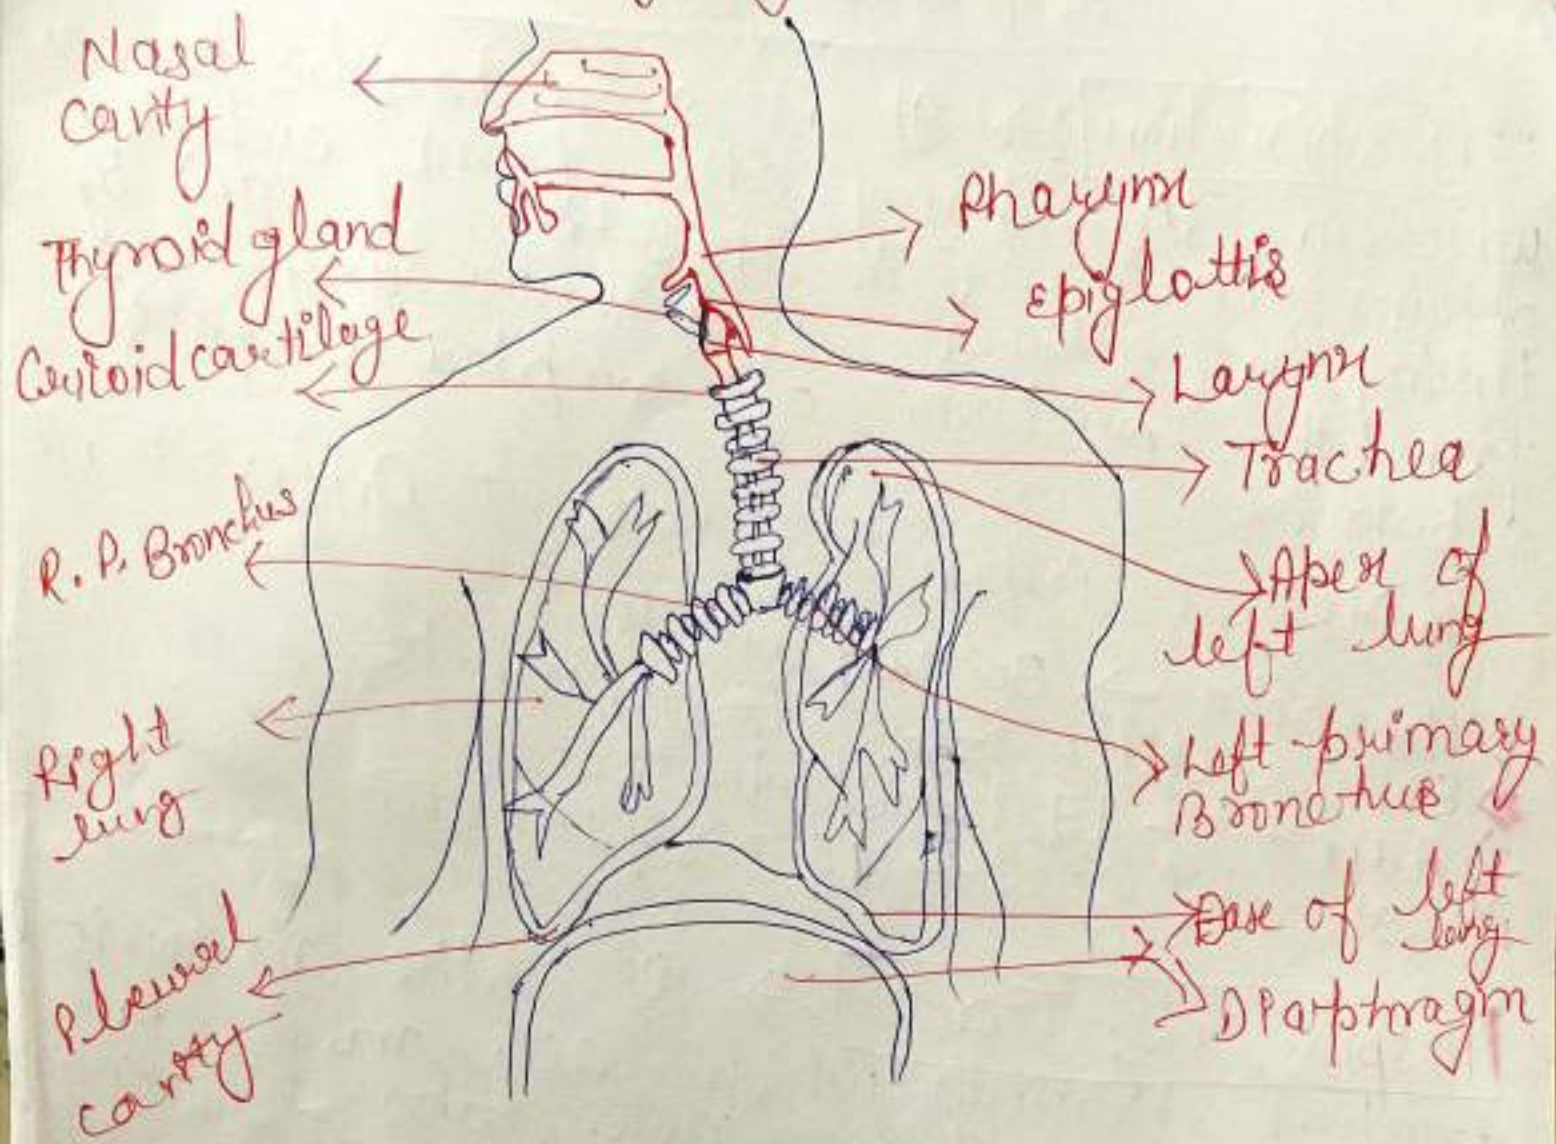 Nasal
Cavity
Thyroid gland
Cricoid cartilage
R. P. Bronchus
Right
lung
Pleural
cavity
Pharynx
Epiglottis
Larynx
Trachea
Apex of
left lung
Left primary
Bronchus
Base of left
lung
Diaphragm